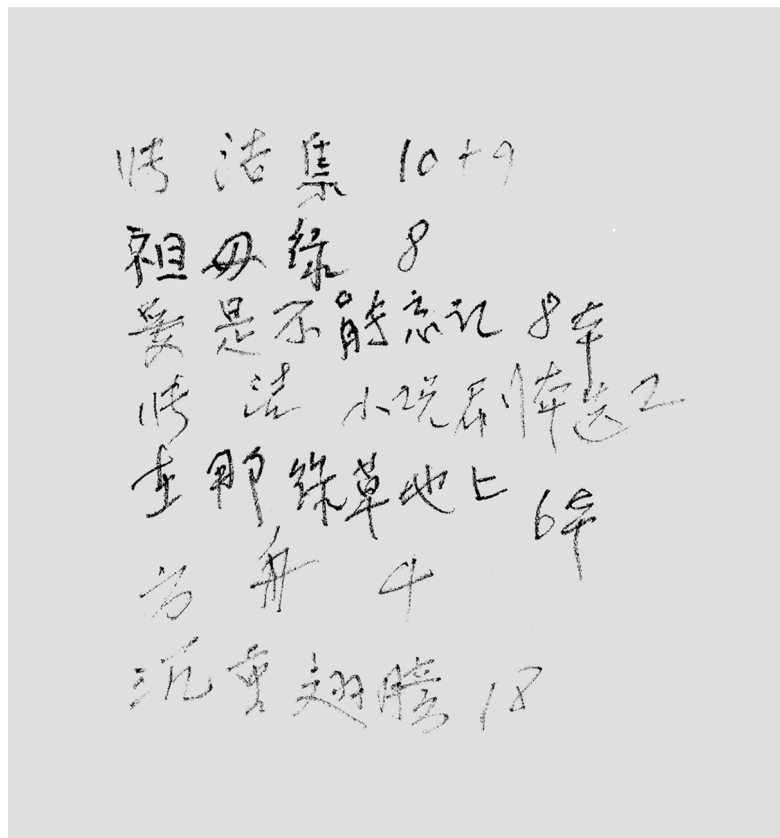 张洁集 10+9
祖母绿 8
爱是不能忘记 8本
张洁 小说剧本选 2
在那绿草地上 6本
方舟 4
沉重翅膀 18